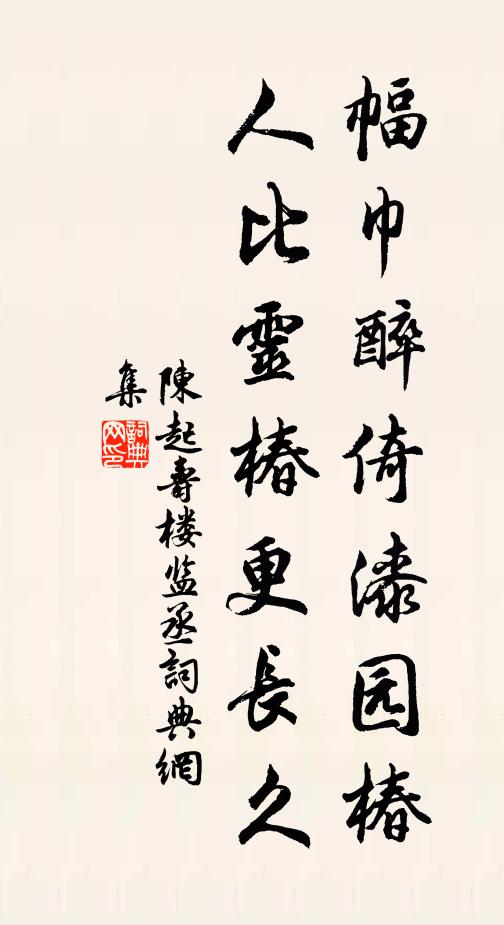 幅巾醉倚漆园椿
人比靈椿更長久
陳起壽楼监丞詞典網
集
詞典网印